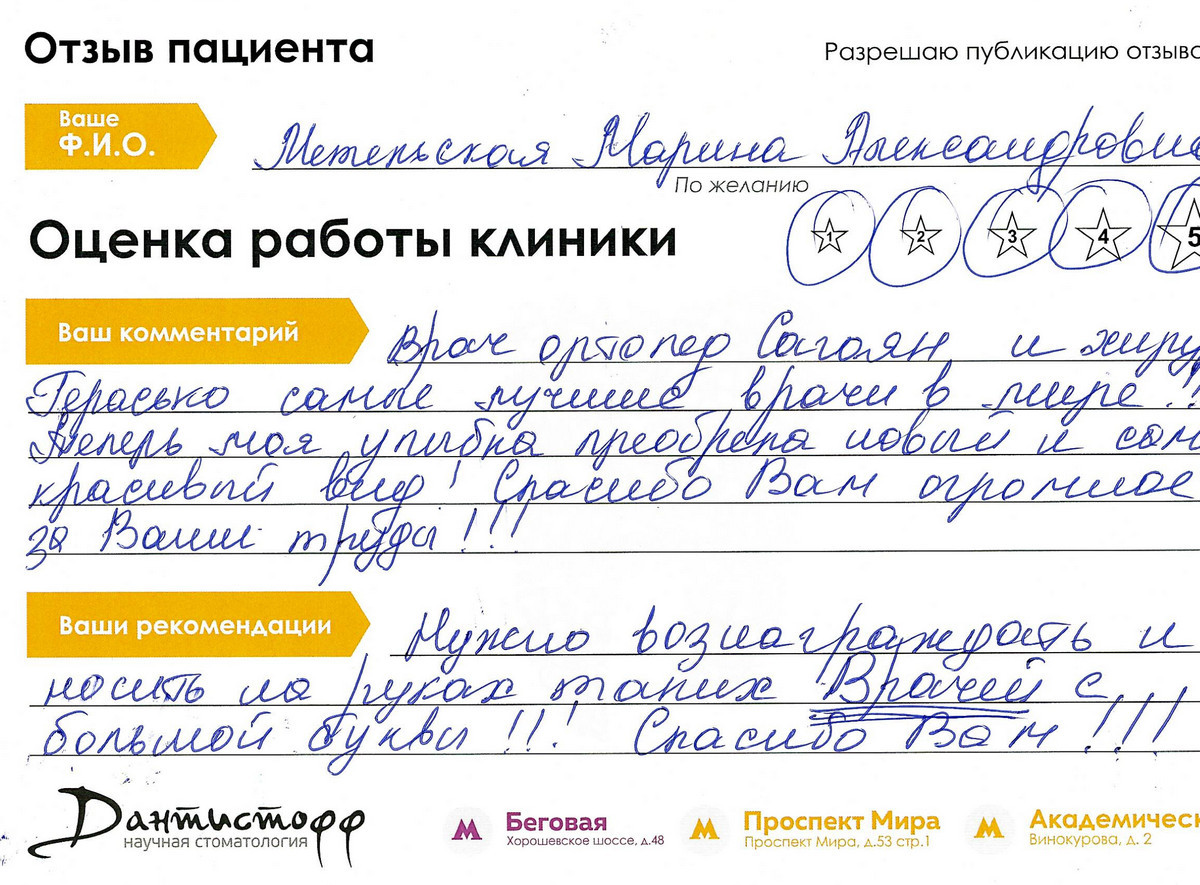 Отзыв пациента
Разрешаю публикацию отзыва
Ваше
Ф.И.О.
Метельская Марина Александрович
По желанию
Оценка работы клиники
1 2 3 4 5
Ваш комментарий
Врач ортопед Сагоян и хиру
Герасько самые лучшие врачи в мире!!
Теперь моя улыбка преобрела новый и сам
красивый вид! Спасибо Вам огромное
за Ваши труды!!!
Ваши рекомендации
Нужно вознаграждать и
носить на руках таких Врачей с
большой буквы!!! Спасибо Вам!!!
Дантистофф
научная стоматология
Беговая
Хорошевское шоссе, д.48
Проспект Мира
Проспект Мира, д.53 стр.1
Академическ
Винокурова, д. 2